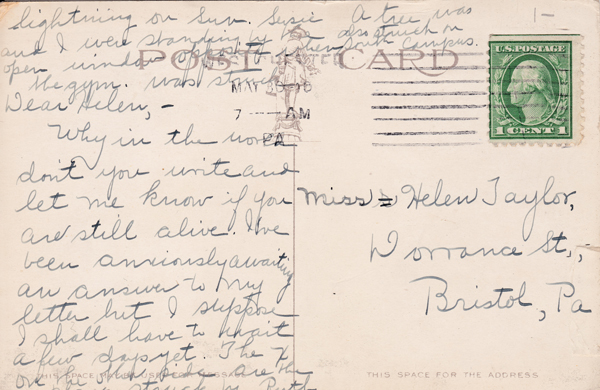 lightning on Sun. Susie A tree was
and I were standing by the also struck on
open window opposite when South Campus.
the gym. was struck
POST CARD
MAY 3
7 — AM
PA
U.S. POSTAGE
1 CENT 1
Dear Helen,-
Why in the world
don't you write and
let me know if you
are still alive. I've
been anxiously awaiting
an answer to my
letter but I suppose
I shall have to wait
a few days yet. The X
on the other side are the
struck by
Miss Helen Taylor,
Dorrance St.,
Bristol, Pa
THIS SPACE FOR THE ADDRESS